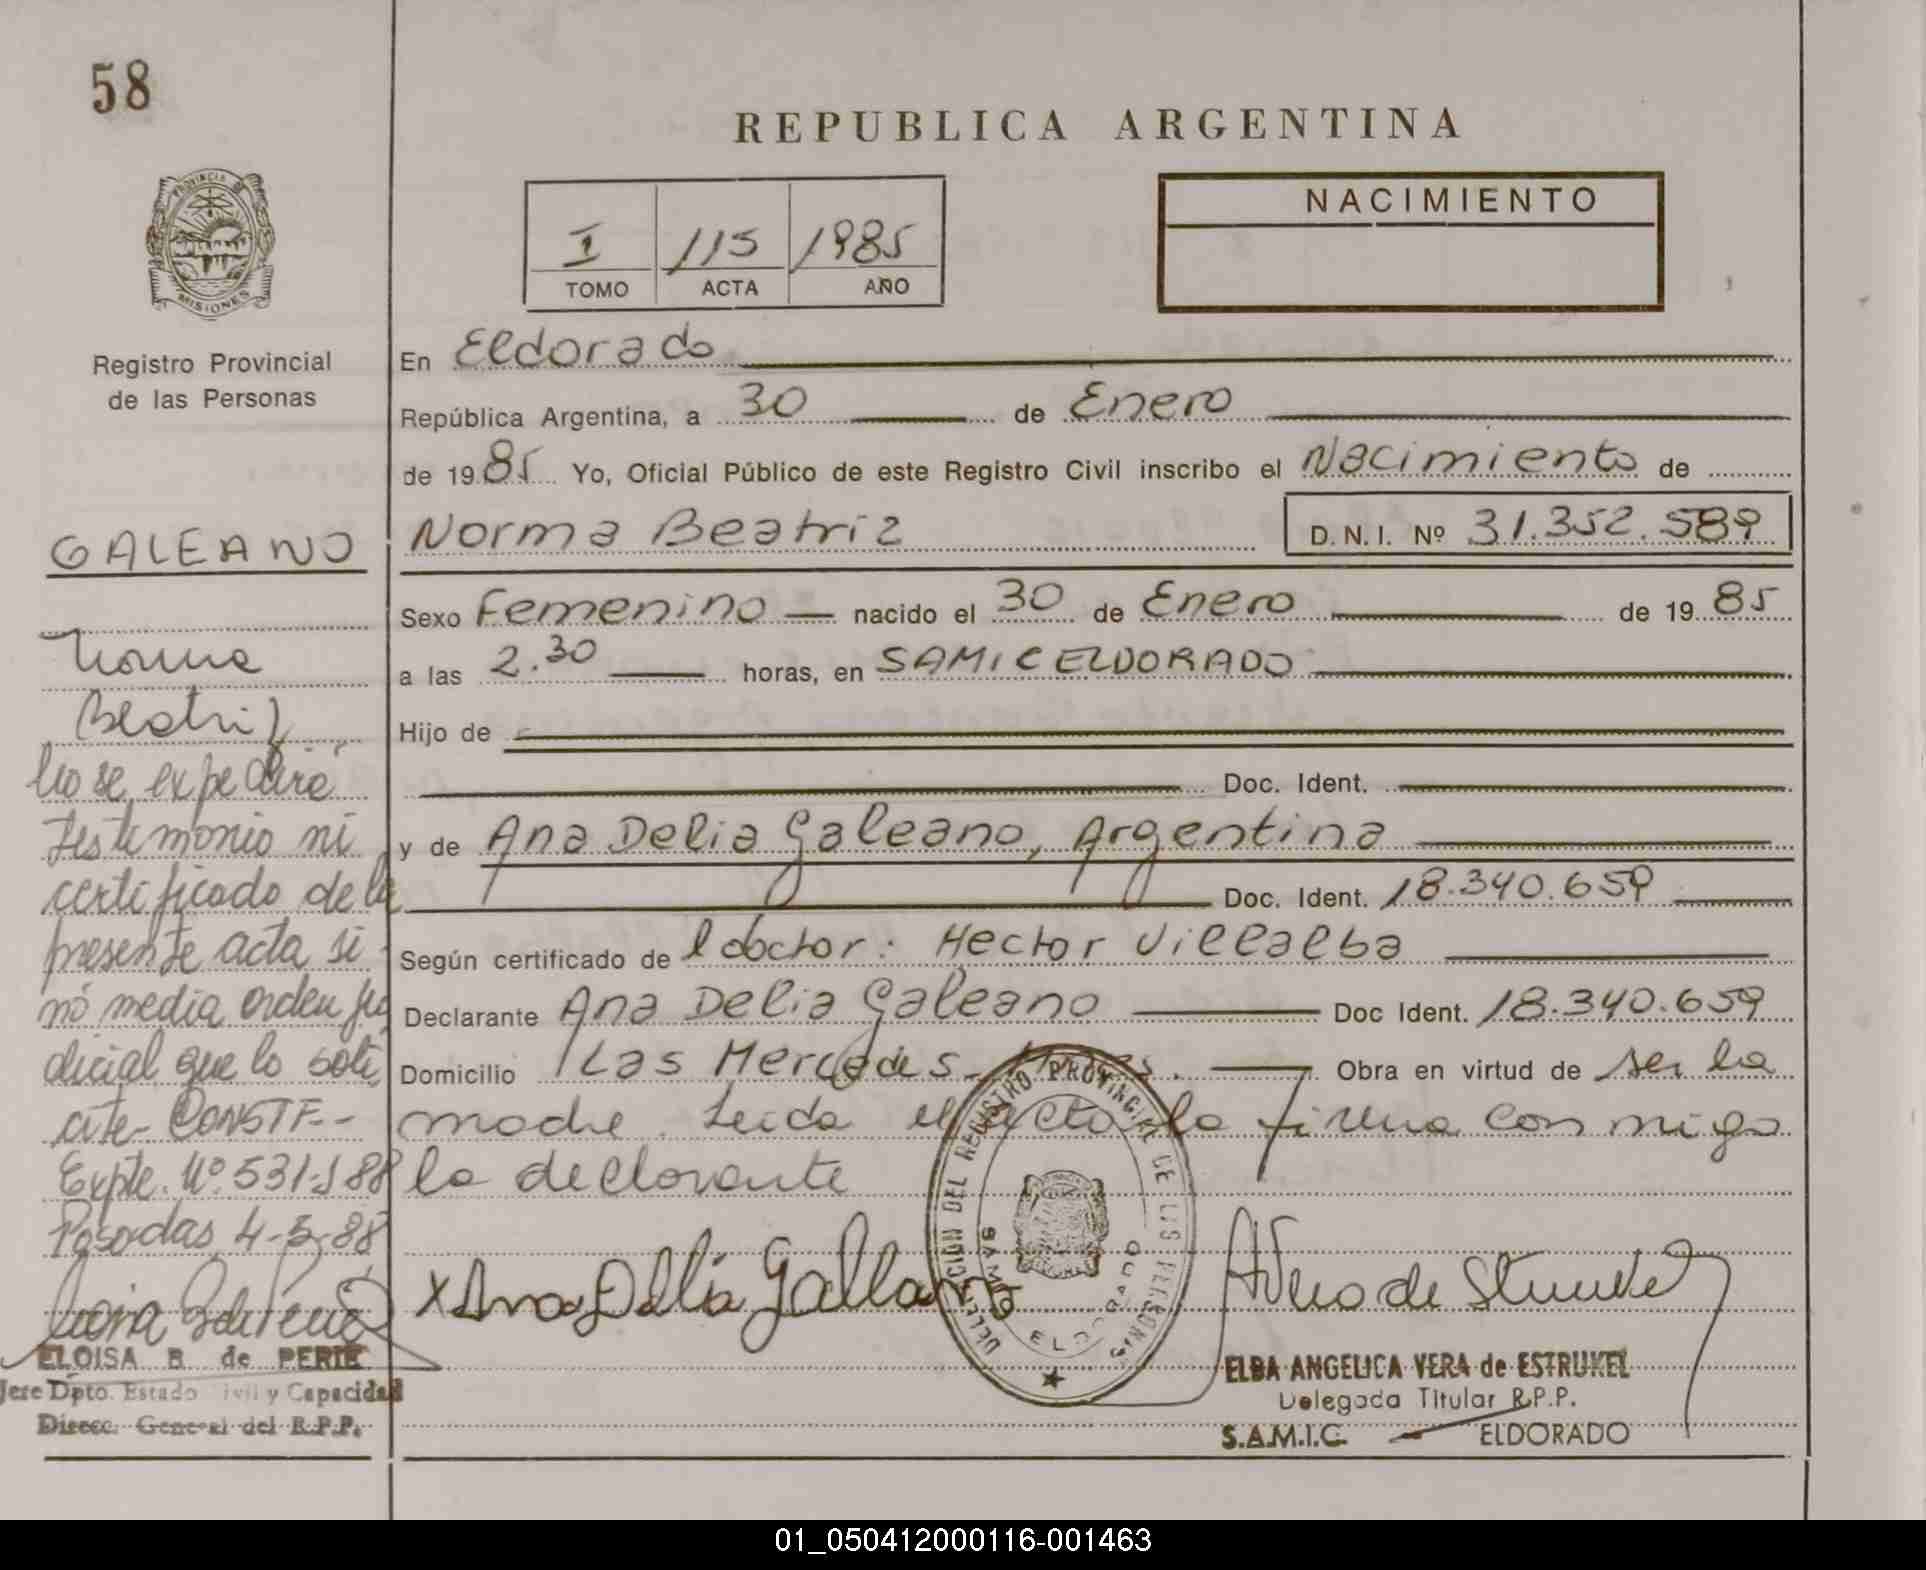 58
REPUBLICA ARGENTINA
PROVINCIA DE
MISIONES
I 115 1985
TOMO ACTA AÑO
NACIMIENTO
Registro Provincial
de las Personas
En Eldorado
República Argentina, a 30 de Enero
de 1985 Yo, Oficial Público de este Registro Civil inscribo el Nacimiento de
Norma Beatriz D. N. I. Nº 31.352.589
Sexo Femenino nacido el 30 de Enero de 1985
a las 2.30 horas, en SAMIC ELDORADO
Hijo de
Doc. Ident.
y de Ana Delia Galeano, Argentina
Doc. Ident. 18.340.659
Según certificado de l doctor: Hector Villalba
Declarante Ana Delia Galeano Doc Ident. 18.340.659
Domicilio Las Mercedes Obra en virtud de ser la
madre. Leida el acta la firma con migo
la declarante
GALEANO
Norma
Beatriz
No se expedirá
testimonio ni
certificado de la
presente acta si
nó media orden ju
dicial que lo soli
cite- CONSTE--
Expte. Nº 531-J 88
Posadas 4-5-88
ELOISA B de PERIE
Jefe Dpto. Estado Civil y Capacidad
Direcc. General del R.P.P.
x Ana Delia Galeano
DELEGACION DEL REGISTRO PROVINCIAL DE LAS PERSONAS
SAMIC
ELDORADO
ELBA ANGELICA VERA de ESTRUKEL
Delegada Titular R.P.P.
S.A.M.I.C. ELDORADO
01_050412000116-001463